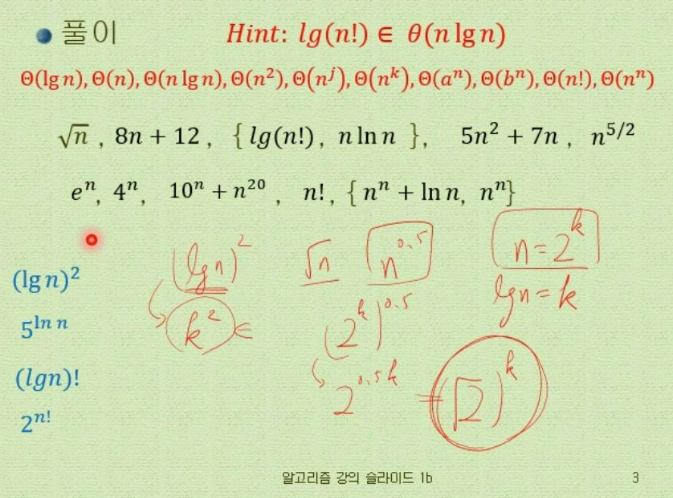 풀이 Hint: lg(n!) ∈ θ(n lg n)
Θ(lg n), Θ(n), Θ(n lg n), Θ(n²), Θ(nʲ), Θ(nᵏ), Θ(aⁿ), Θ(bⁿ), Θ(n!), Θ(nⁿ)
√n , 8n + 12 , { lg(n!), n ln n }, 5n² + 7n , n^{5/2}
eⁿ, 4ⁿ, 10ⁿ + n²⁰ , n! , { nⁿ + ln n, nⁿ}
(lg n)²
5^{ln n}
(lgn)!
2^{n!}
(lg n)²
k² ∈
√n n^{0.5}
(2ᵏ)^{0.5}
2^{0.5k} = (√2)ᵏ
n = 2ᵏ
lg n = k
알고리즘 강의 슬라이드 1b 3